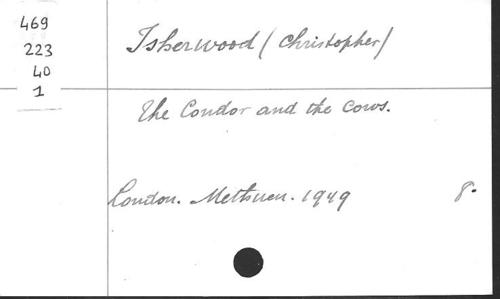 469
223
40
1
Isherwood (Christopher)
The Condor and the Cows.
London. Methuen. 1949 8.